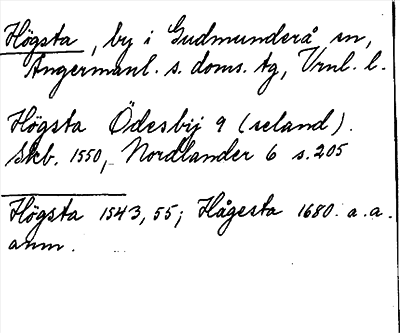 Högsta, by i Gudmunderå sn,
Ångermanl. s. doms. tg, Vrnl. l.
Högsta Ödesbij 9 (seland).
Skb. 1550, Nordlander 6 s. 205
Högsta 1543, 55; Hågesta 1680. a. a.
anm.